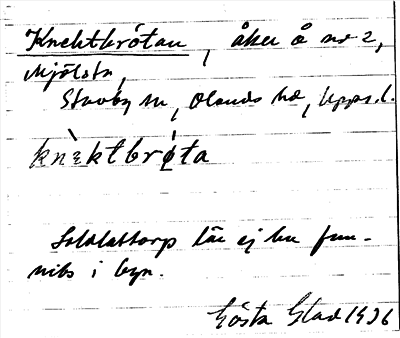 Knektbrötan, åker å nr 2,
Mjölsta,
Stavby sn, Olands hd, Upps. l.
knæktbrøta
Soldattorp lär ej ha fun-
nits i byn.
Gösta Stad 1936